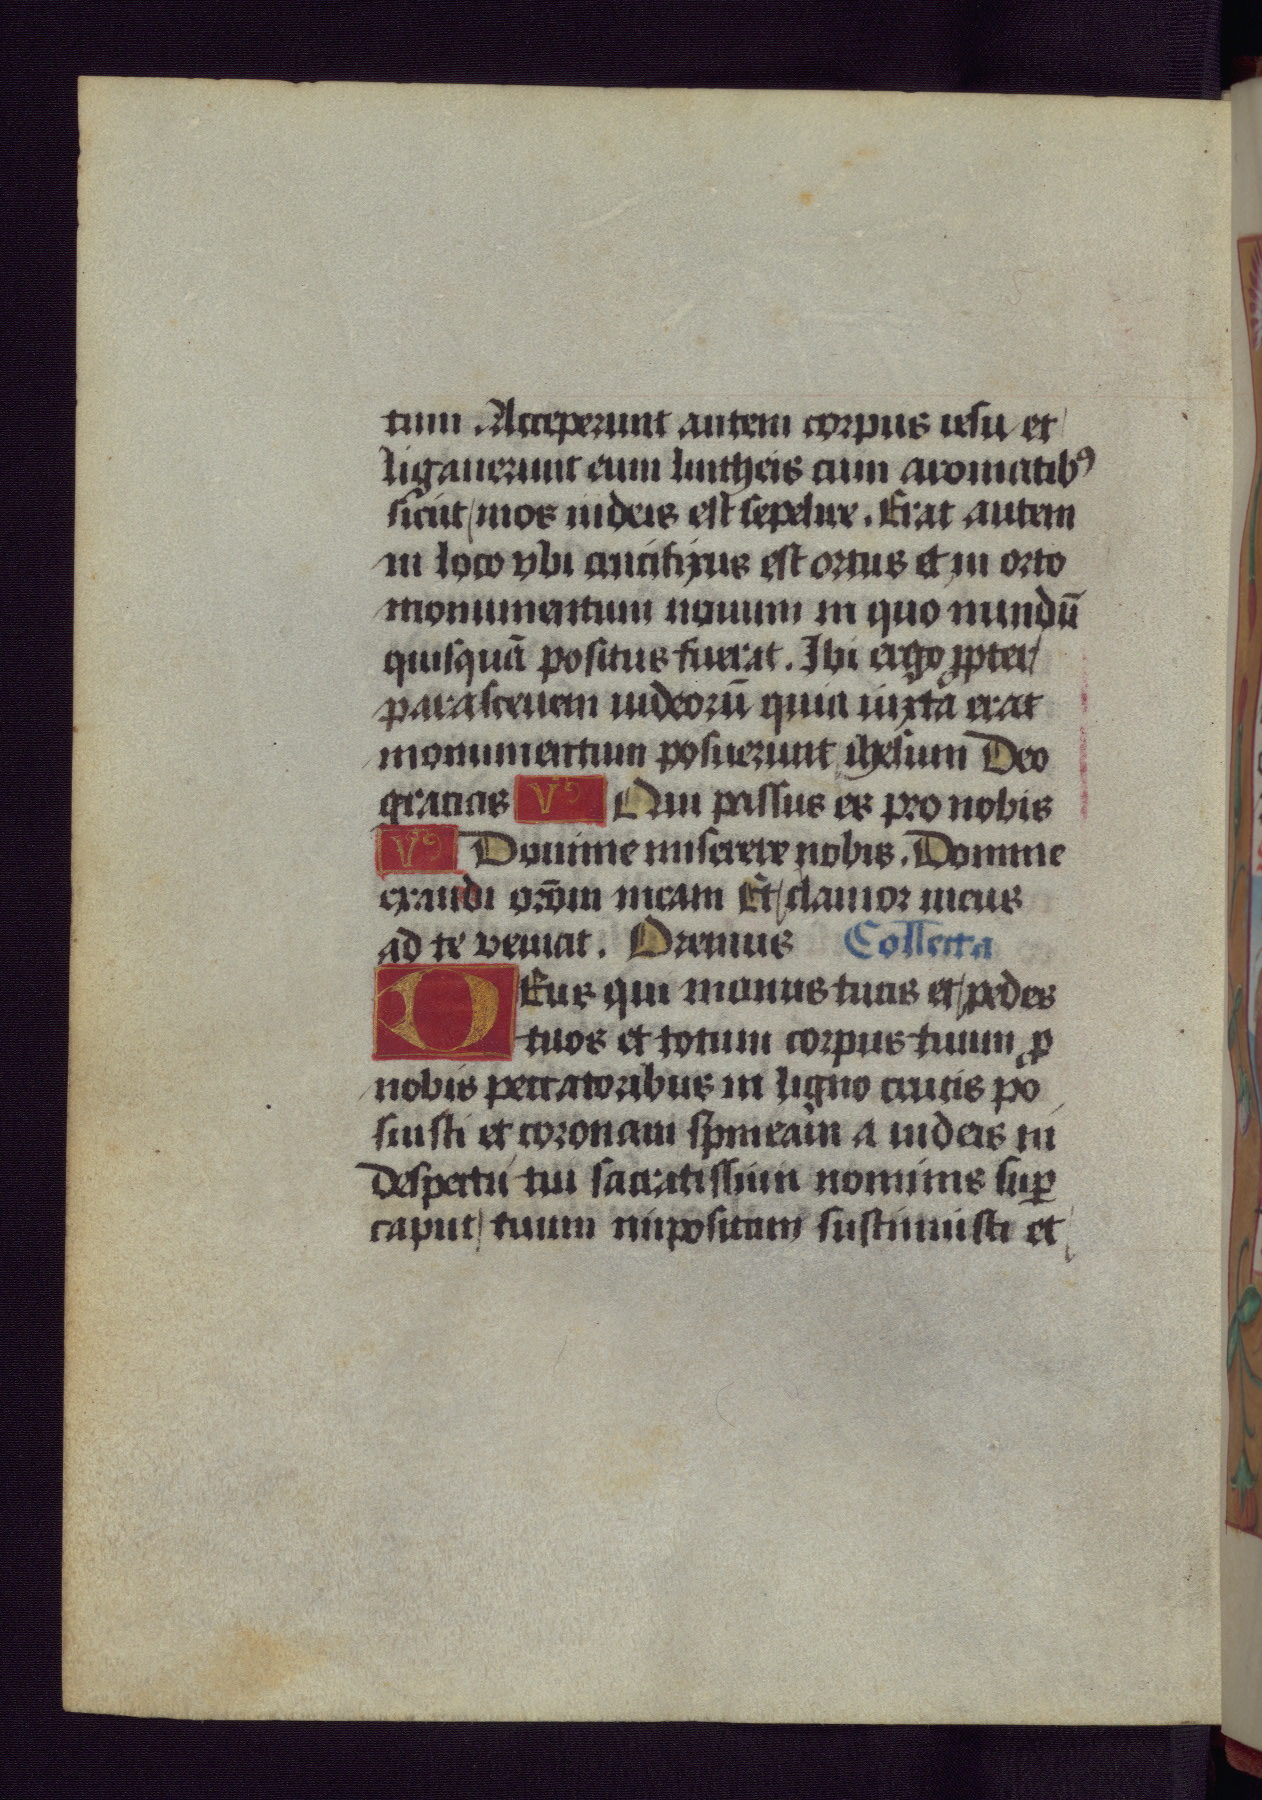 tum. Acceperunt autem corpus iesu et
ligauerunt eum lintheis cum aromatibꝰ
sicut mos iudeis est sepelire. Erat autem
in loco vbi crucifixus est ortus et in orto
monumentum nouum in quo nundū
quisquā positus fuerat. Ibi ergo ꝓpter
parasceuem iudeorū quia iuxta erat
monumentum posuerunt ihesum Deo
gracias V Qui passus es pro nobis
V Domine miserere nobis. Domine
exaudi orōm meam Et clamor meus
ad te veniat. Oremus Collecta
DEus qui manus tuas et pedes
tuos et totum corpus tuum ꝓ
nobis peccatoribus in ligno crucis po
suisti et coronam spineam a iudeis in
despectu tui sacratissimi nominis suꝑ
caput tuum impositam sustinuisti et